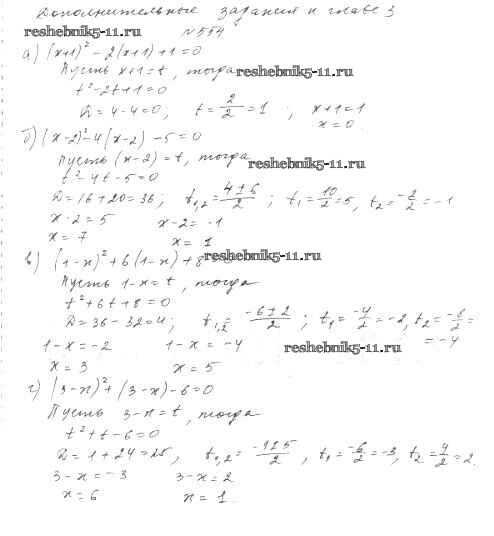 Дополнительные задания к главе 3
reshebnik5-11.ru № 554
а) (x+1)² - 2(x+1) + 1 = 0
Пусть x+1 = t, тогда reshebnik5-11.ru
t² - 2t + 1 = 0
D = 4 - 4 = 0; t = 2/2 = 1; x+1 = 1
x = 0.
б) (x-2)² - 4(x-2) - 5 = 0
Пусть (x-2) = t, тогда reshebnik5-11.ru
t² - 4t - 5 = 0
D = 16 + 20 = 36; t₁,₂ = (4±6)/2; t₁ = 10/2 = 5, t₂ = -2/2 = -1
x-2 = 5 x-2 = -1
x = 7 x = 1
в) (1-x)² + 6(1-x) + 8 reshebnik5-11.ru
Пусть 1-x = t, тогда
t² + 6t + 8 = 0
D = 36 - 32 = 4; t₁,₂ = (-6±2)/2; t₁ = -4/2 = -2, t₂ = -8/2 =
= -4
1-x = -2 1-x = -4 reshebnik5-11.ru
x = 3 x = 5
г) (3-x)² + (3-x) - 6 = 0
Пусть 3-x = t, тогда
t² + t - 6 = 0
D = 1 + 24 = 25, t₁,₂ = (-1±5)/2, t₁ = -6/2 = -3, t₂ = 4/2 = 2.
3-x = -3 3-x = 2
x = 6 x = 1.